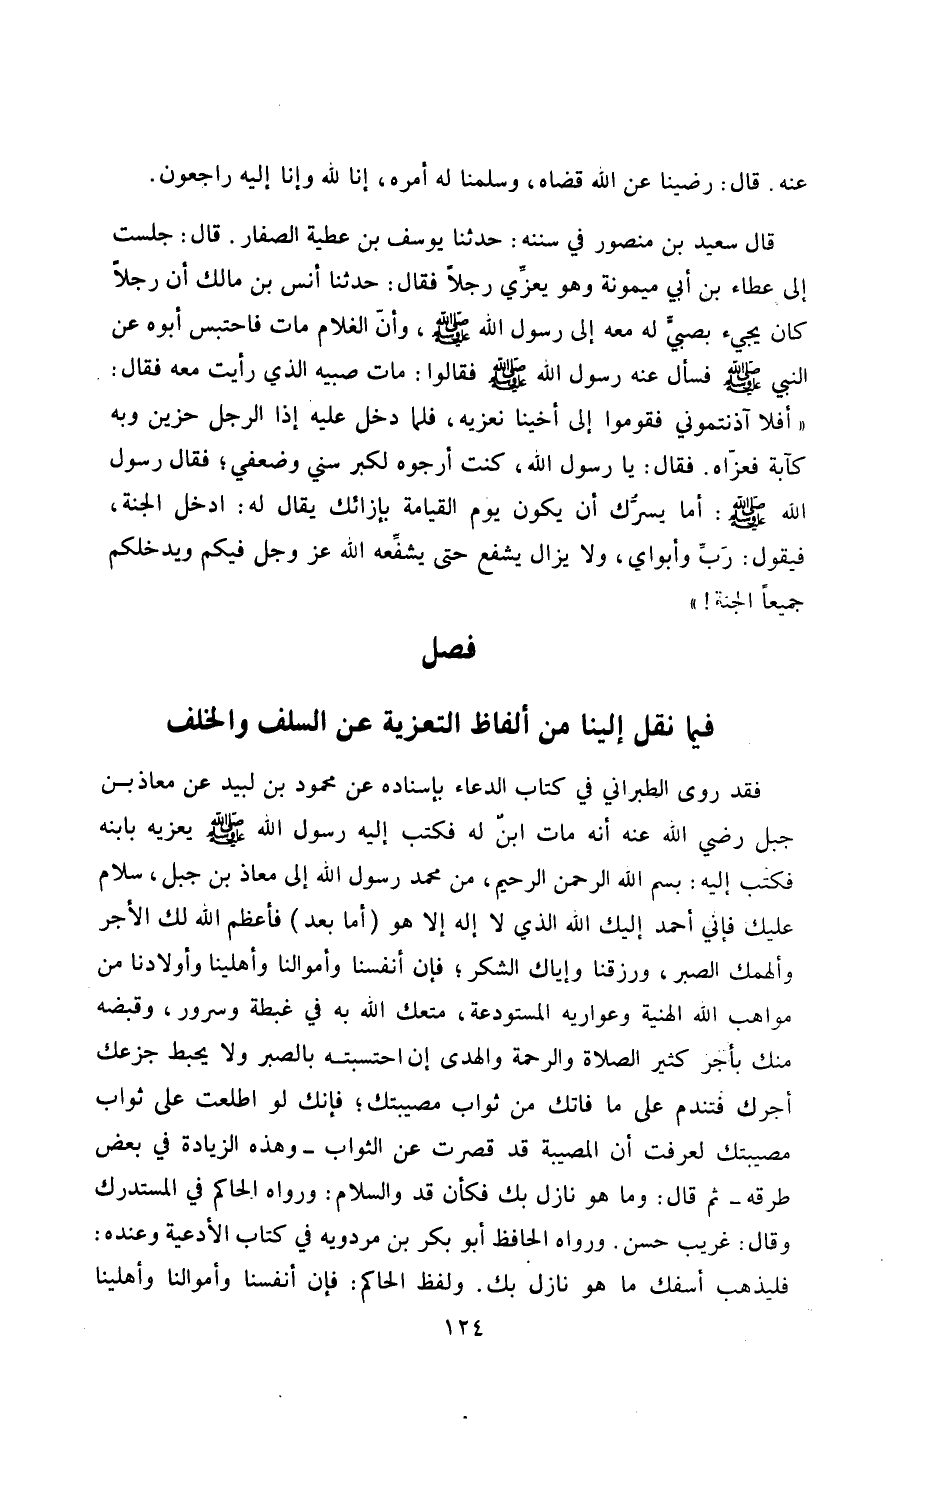 عنه. قال: رضينا عن الله قضاه، وسلمنا له أمره، إنا لله وإنا إليه راجعون.
قال سعيد بن منصور في سننه: حدثنا يوسف بن عطية الصفار. قال: جلست
إلى عطاء بن أبي ميمونة وهو يعزِّي رجلاً فقال: حدثنا أنس بن مالك أن رجلاً
كان يجيء بصبيٍّ له معه إلى رسول الله ﷺ، وأنّ الغلام مات فاحتبس أبوه عن
النبي ﷺ فسأل عنه رسول الله ﷺ فقالوا: مات صبيه الذي رأيت معه فقال:
« أفلا آذنتموني فقوموا إلى أخينا نعزيه، فلما دخل عليه إذا الرجل حزين وبه
كآبة فعزّاه. فقال: يا رسول الله، كنت أرجوه لكبر سني وضعفي؛ فقال رسول
الله ﷺ: أما يسرُّك أن يكون يوم القيامة بإزائك يقال له: ادخل الجنة،
فيقول: رَبِّ وأبواي، ولا يزال يشفع حتى يشفِّعه الله عز وجل فيكم ويدخلكم
جميعاً الجنة! »
فصل
فيما نقل إلينا من ألفاظ التعزية عن السلف والخلف
فقد روى الطبراني في كتاب الدعاء بإسناده عن محمود بن لبيد عن معاذ بن
جبل رضي الله عنه أنه مات ابنٌ له فكتب إليه رسول الله ﷺ يعزيه بابنه
فكتب إليه: بسم الله الرحمن الرحيم، من محمد رسول الله إلى معاذ بن جبل، سلام
عليك فإني أحمد إليك الله الذي لا إله إلا هو (أما بعد) فأعظم الله لك الأجر
وألهمك الصبر، ورزقنا وإياك الشكر؛ فإن أنفسنا وأموالنا وأهلينا وأولادنا من
مواهب الله الهنية وعواريه المستودعة، متعك الله به في غبطة وسرور، وقبضه
منك بأجر كثير الصلاة والرحمة والهدى إن احتسبته بالصبر ولا يحبط جزعك
أجرك فتندم على ما فاتك من ثواب مصيبتك؛ فإنك لو اطلعت على ثواب
مصيبتك لعرفت أن المصيبة قد قصرت عن الثواب ـ وهذه الزيادة في بعض
طرقه ـ ثم قال: وما هو نازل بك فكأن قد والسلام: ورواه الحاكم في المستدرك
وقال: غريب حسن. ورواه الحافظ أبو بكر بن مردويه في كتاب الأدعية وعنده:
فليذهب أسفك ما هو نازل بك. ولفظ الحاكم: فإن أنفسنا وأموالنا وأهلينا
١٢٤